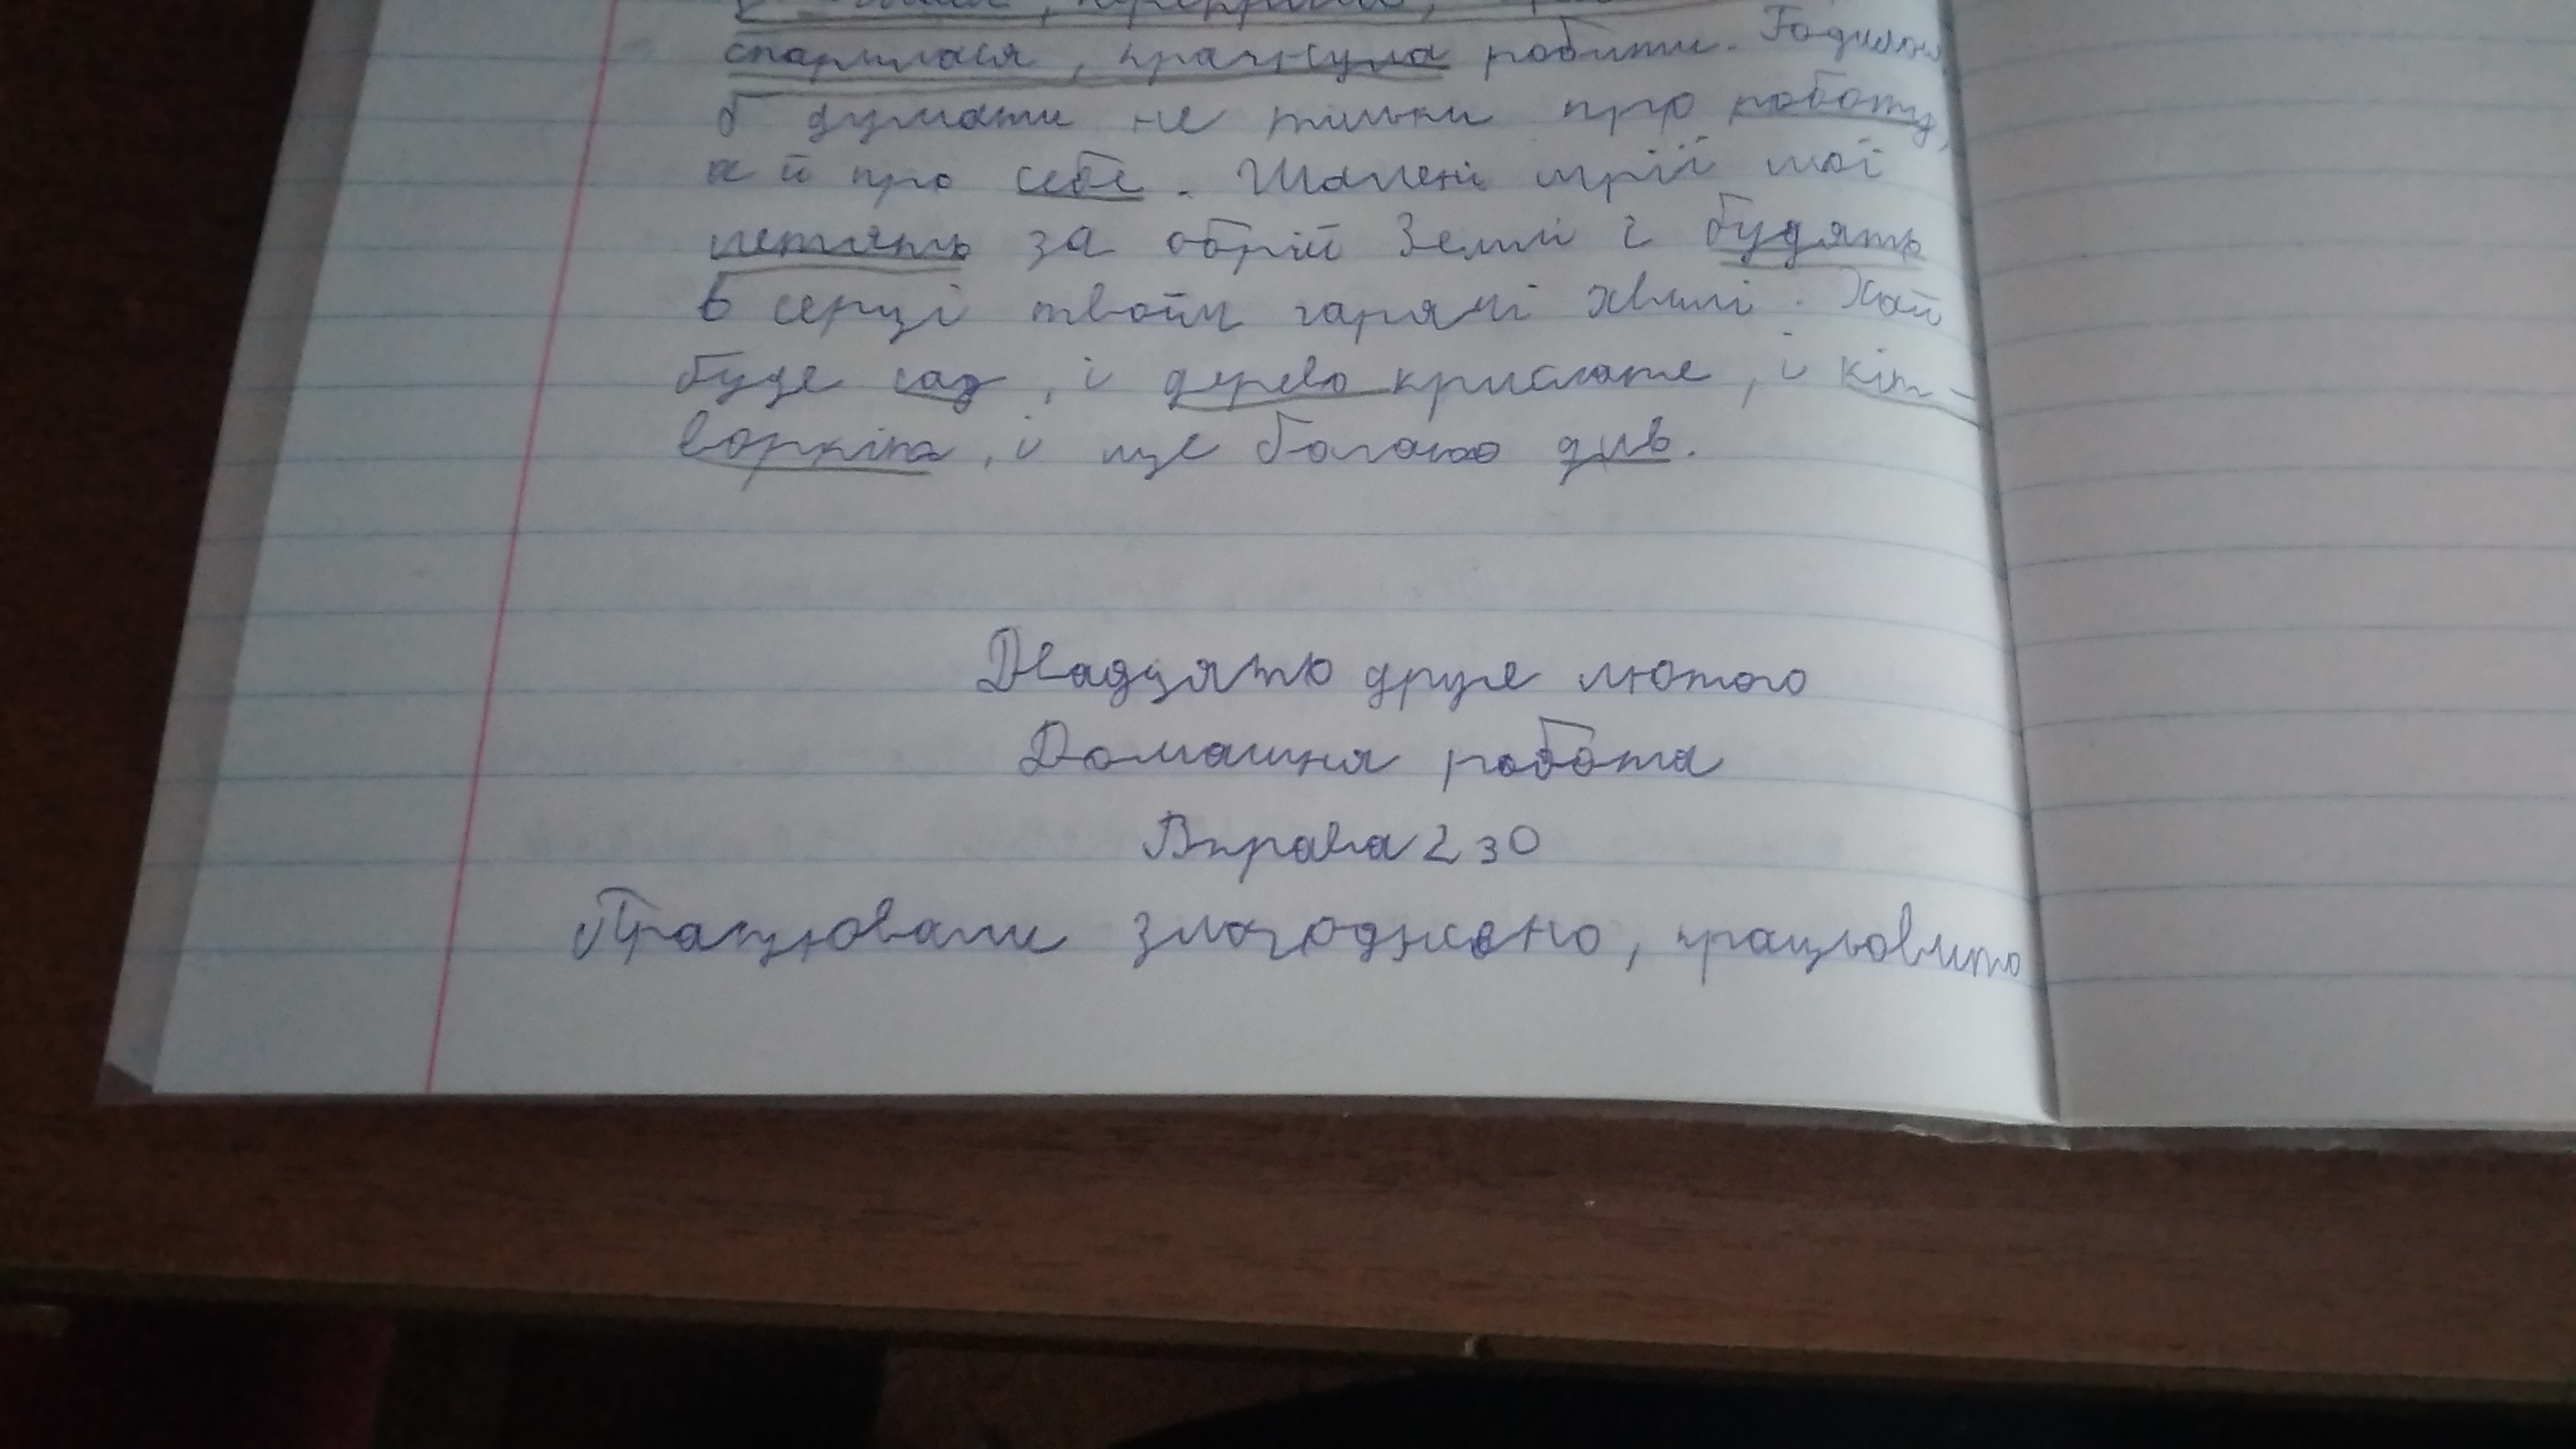 спарилася, прагнула робити. Годилося
б думати не тільки про роботу,
а й про себе. Шалені мрії мої
летять за обрій Землі і будять
в серці твоїм гарячі хвилі. Хай
буде сад, і дерево крислате, і кіт-
воркіт, і ще багато див.
Двадцять друге лютого
Домашня робота
Вправа 230
Працювати злагоджено, працьовито